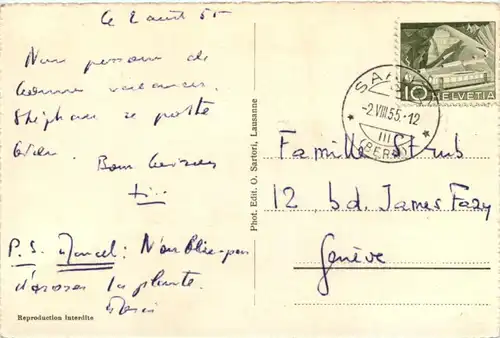 Le 2 août 55
Nous passons de
bonnes vacances.
Stéphane se porte
bien. Bons baisers
P.S. Marcel: N'oublie pas
d'arroser la plante.
Merci
Reproduction interdite
Phot. Edit. O. Sartori, Lausanne
10 HELVETIA
SAANEN
-2.VIII.55.-12
III
(BERN)
Famille Strub
12, bd. James Fazy
Genève